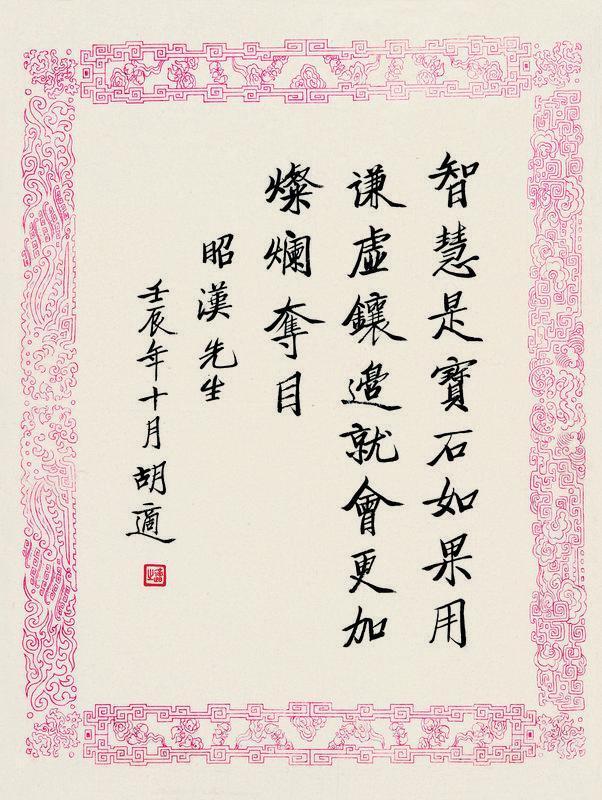 智慧是寶石如果用
谦虛鑲邊就會更加
燦爛奪目
昭漢先生
壬辰年十月胡適